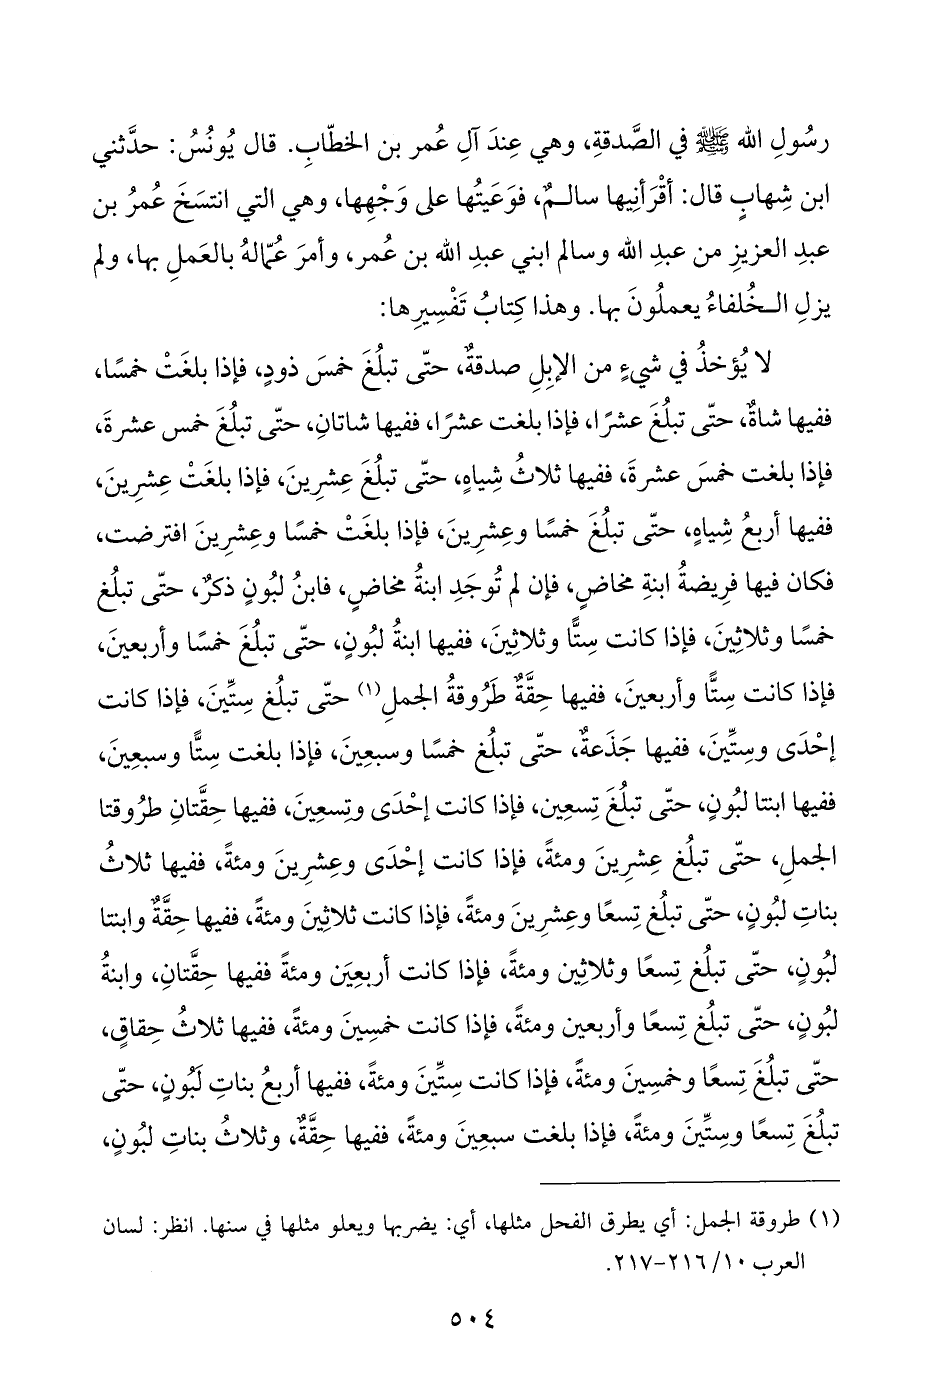 رسُولِ الله ﷺ في الصَّدقةِ، وهي عِندَ آلِ عُمر بن الخطّابِ. قال يُونُسُ: حدَّثني
ابن شِهابٍ قال: أقْرَأنِيها سالـمٌ، فوَعَيتُها على وَجْهِها، وهي التي انتسَخَ عُمرُ بن
عبدِ العزيزِ من عبدِ الله وسالم ابني عبدِ الله بن عُمر، وأمرَ عُمّالهُ بالعَملِ بها، ولم
يزلِ الـخُلفاءُ يعملُونَ بها. وهذا كِتابُ تَفْسِيرِها:
لا يُؤخذُ في شيءٍ من الإبِلِ صدقةٌ، حتّى تبلُغَ خمسَ ذودٍ، فإذا بلغَتْ خمسًا،
ففيها شاةٌ، حتّى تبلُغَ عشرًا، فإذا بلغت عشرًا، ففيها شاتانِ، حتّى تبلُغَ خمس عشرةَ،
فإذا بلغت خمسَ عشرةَ، ففيها ثلاثُ شِياهٍ، حتّى تبلُغَ عِشرِينَ، فإذا بلغَتْ عِشرِينَ،
ففيها أربعُ شِياهٍ، حتّى تبلُغَ خمسًا وعِشرِينَ، فإذا بلغَتْ خمسًا وعِشرِينَ افترضت،
فكان فيها فرِيضةُ ابنةِ مخاضٍ، فإن لم تُوجَدِ ابنةُ مخاضٍ، فابنُ لبُونٍ ذكرٌ، حتّى تبلُغ
خمسًا وثلاثِينَ، فإذا كانت سِتًّا وثلاثِينَ، ففيها ابنةُ لبُونٍ، حتّى تبلُغَ خمسًا وأربعينَ،
فإذا كانت سِتًّا وأربعينَ، ففيها حِقَّةٌ طَرُوقةُ الجملِ(١) حتّى تبلُغ سِتِّينَ، فإذا كانت
إحْدَى وسِتِّينَ، ففيها جَذَعةٌ، حتّى تبلُغ خمسًا وسبعِينَ، فإذا بلغت سِتًّا وسبعِينَ،
ففيها ابنتا لبُونٍ، حتّى تبلُغَ تِسعِين، فإذا كانت إحْدَى وتِسعِينَ، ففيها حِقَّتانِ طرُوقتا
الجملِ، حتّى تبلُغ عِشرِينَ ومئةً، فإذا كانت إحْدَى وعِشرِينَ ومئةً، ففيها ثلاثُ
بناتِ لبُونٍ، حتّى تبلُغ تِسعًا وعِشرِينَ ومئةً، فإذا كانت ثلاثِينَ ومئةً، ففيها حِقَّةٌ وابنتا
لبُونٍ، حتّى تبلُغ تِسعًا وثلاثِين ومئةً، فإذا كانت أربعِيَن ومئةً ففيها حِقَّتانِ، وابنةُ
لبُونٍ، حتّى تبلُغ تِسعًا وأربعين ومئةً، فإذا كانت خمسِينَ ومئةً، ففيها ثلاثُ حِقاقٍ،
حتّى تبلُغَ تِسعًا وخمسِينَ ومئةً، فإذا كانت سِتِّينَ ومئةً، ففيها أربعُ بناتِ لَبُونٍ، حتّى
تبلُغَ تِسعًا وسِتِّينَ ومئةً، فإذا بلغت سبعِينَ ومئةً، ففيها حِقَّةٌ، وثلاثُ بناتِ لبُونٍ،
(١) طروقة الجمل: أي يطرق الفحل مثلها، أي: يضربها ويعلو مثلها في سنها. انظر: لسان
العرب ١٠/ ٢١٦-٢١٧.
٥٠٤